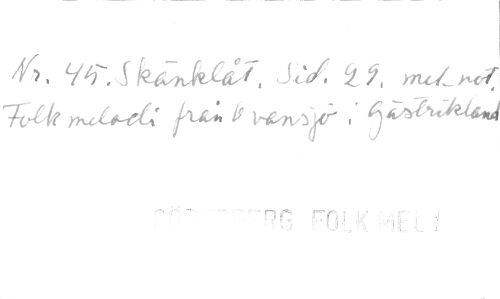 Nr. 45. Skänklåt. Sid. 29. mel. not.
Folkmelodi från Ovansjö i Gästrikland
SÖDERBERG FOLKMEL 1